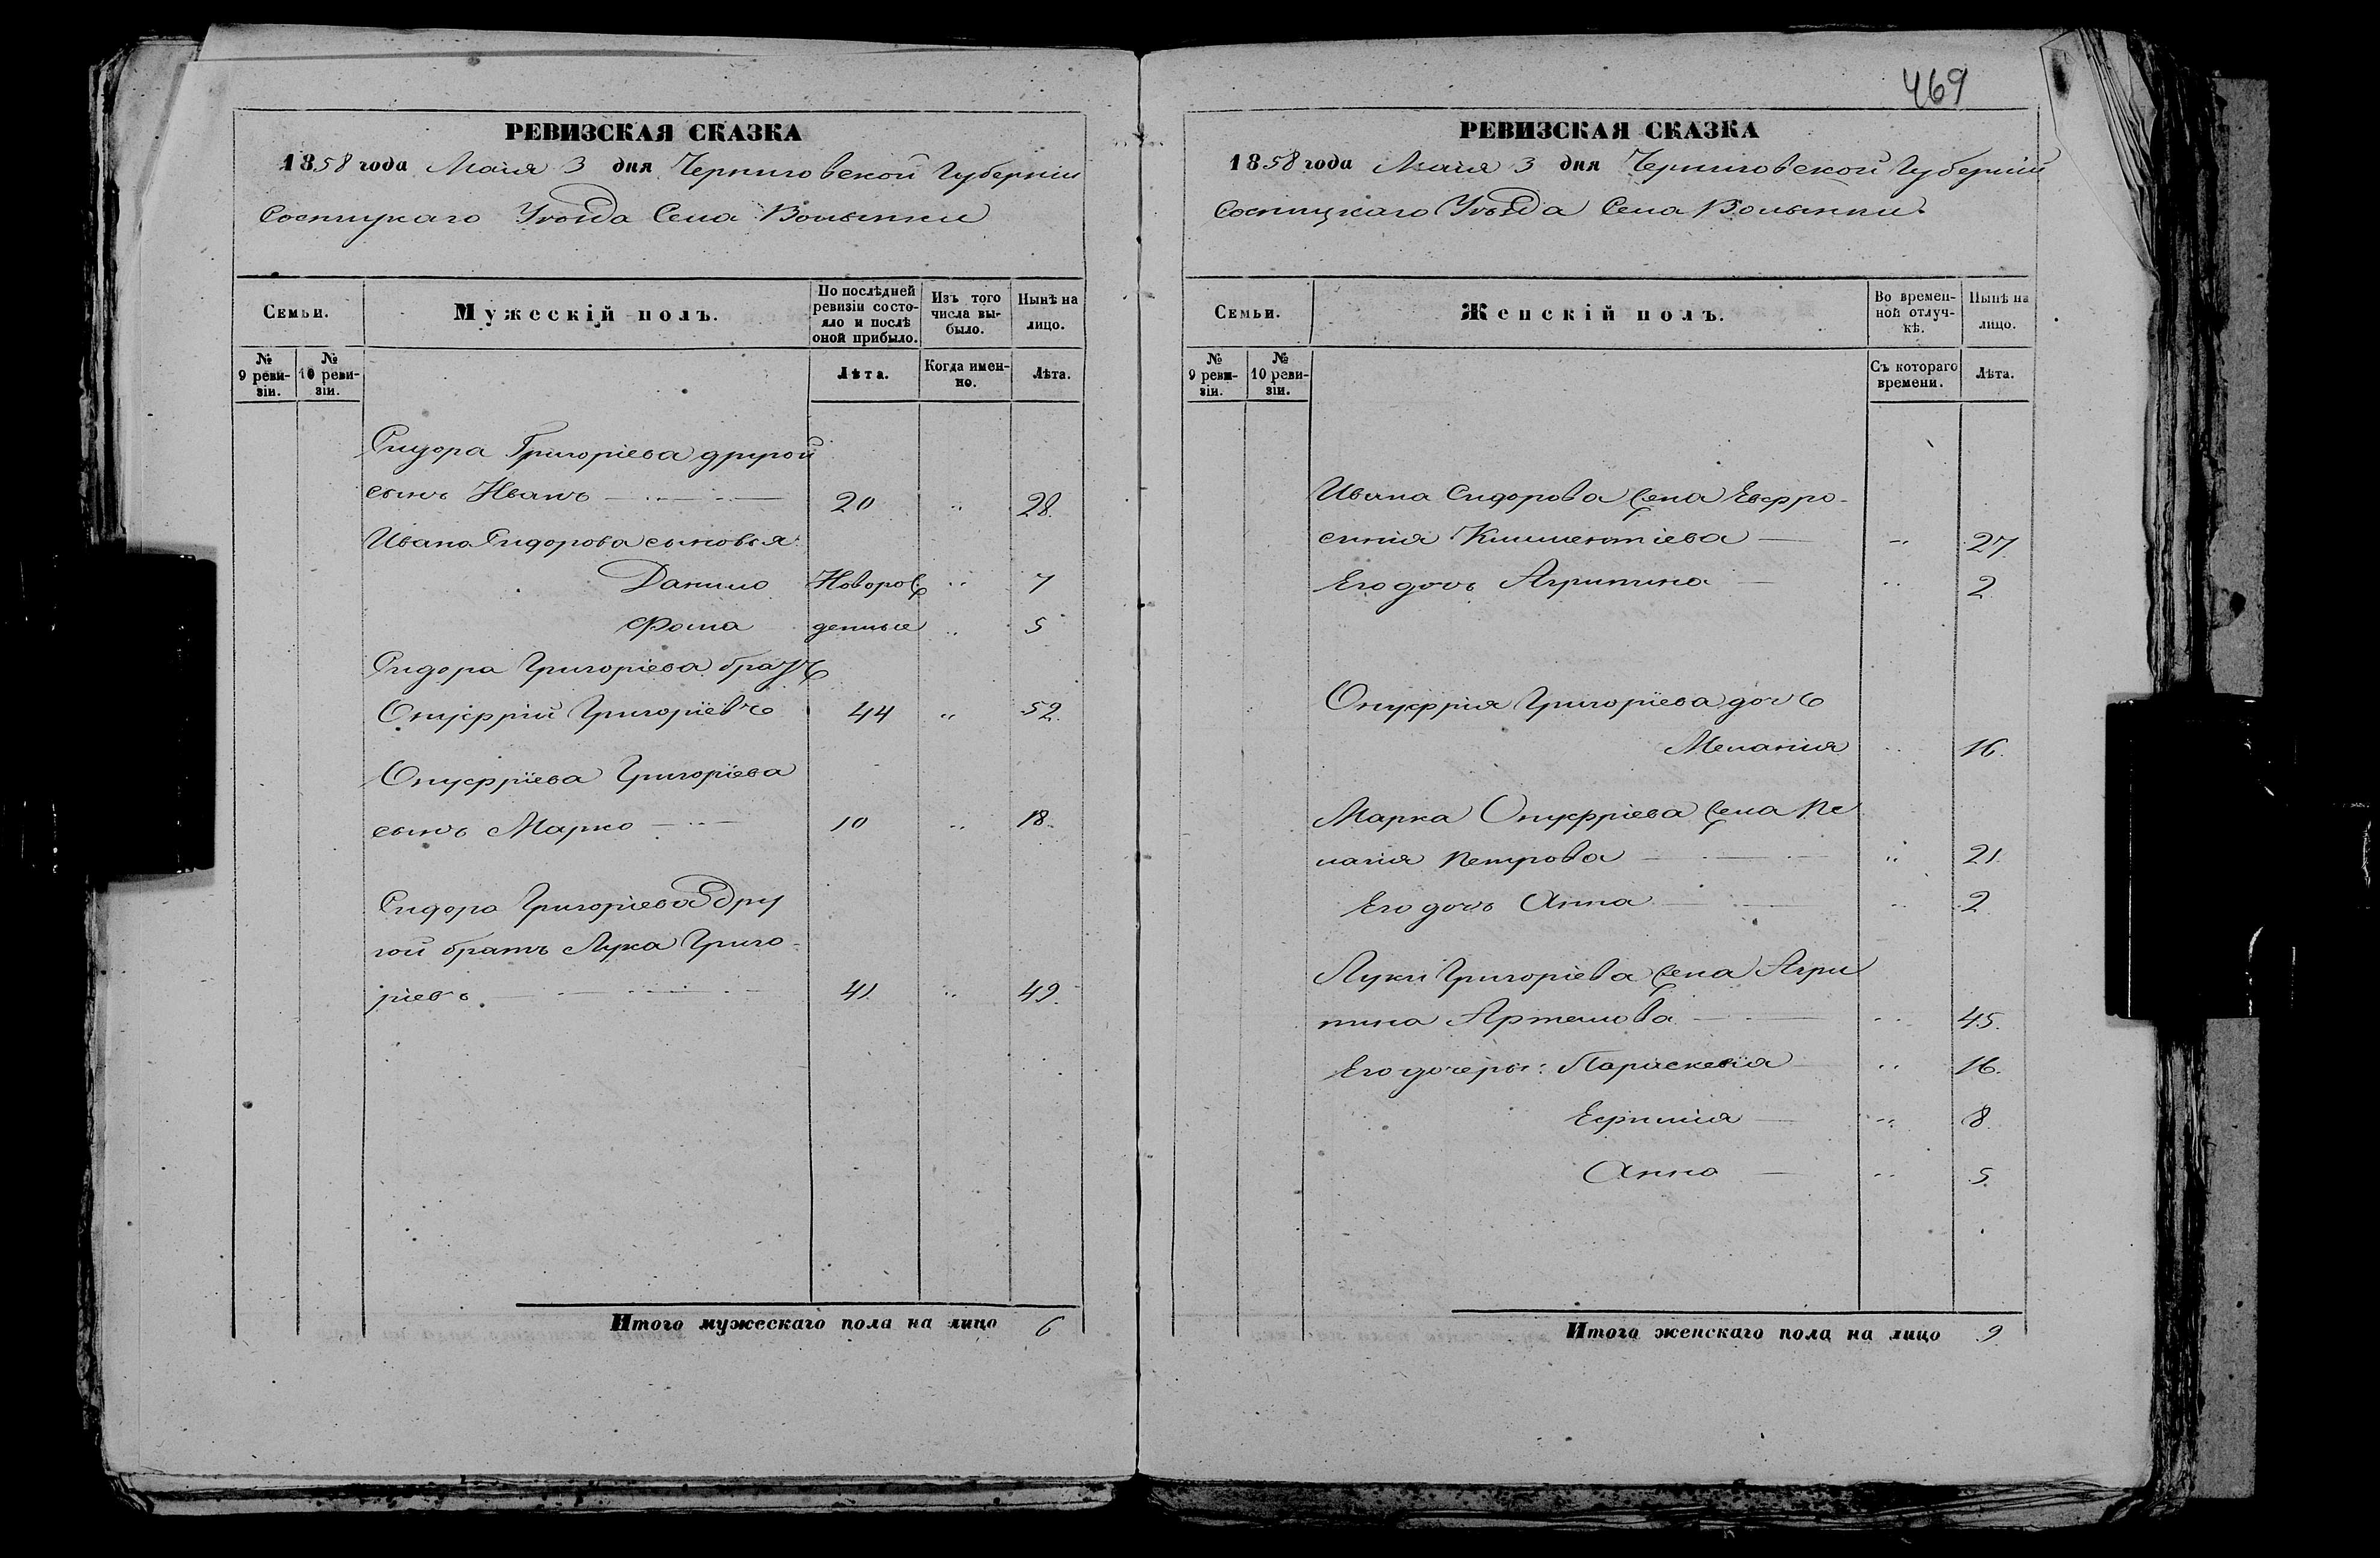 РЕВИЗСКАЯ СКАЗКА
1858 года Маія 3 дня Черниговской Губерніи
Сосницкаго Уѣзда Села Волынки
Семьи.
Мужескій полъ.
По послѣдней ревизіи состояло и послѣ оной прибыло.
Изъ того числа выбыло.
Нынѣ на лицо.
№ 9 ревизіи.
№ 10 ревизіи.
Лѣта.
Когда именно.
Лѣта.
Сидора Григоріева другой
сынъ Иванъ 20 „ 28.
Ивана Сидорова сыновья:
Данило Новорож „ 7
Фома денные „ 5
Сидора Григоріева братъ
Онуфрій Григоріевъ 44 „ 52.
Онуфріева Григоріева
сынъ Марко 10 „ 18.
Сидора Григоріева дру
гой братъ Лука Григо-
ріевъ. 41. „ 49.
Итого мужескаго пола на лицо 6
469
РЕВИЗСКАЯ СКАЗКА
1858 года Маія 3 дня Черниговской Губерніи
Сосницкаго Уѣзда Села Волынки.
Семьи.
Женскій полъ.
Во временной отлучкѣ.
Нынѣ на лицо.
№ 9 ревизіи.
№ 10 ревизіи.
Съ котораго времени.
Лѣта.
Ивана Сидорова жена Евфро-
синія Климентіева „ 27
Его дочь Агрипина „ 2.
Онуфрія Григоріева дочь
Меланія „ 16.
Марка Онуфріева жена Пе
лагія Петрова „ 21.
Его дочь Анна „ 2
Луки Григоріева жена Агри
пина Артемова „ 45.
Его дочери: Параскевія „ 16.
Ефимія „ 8.
Анна „ 5.
Итого женскаго пола на лицо 9.